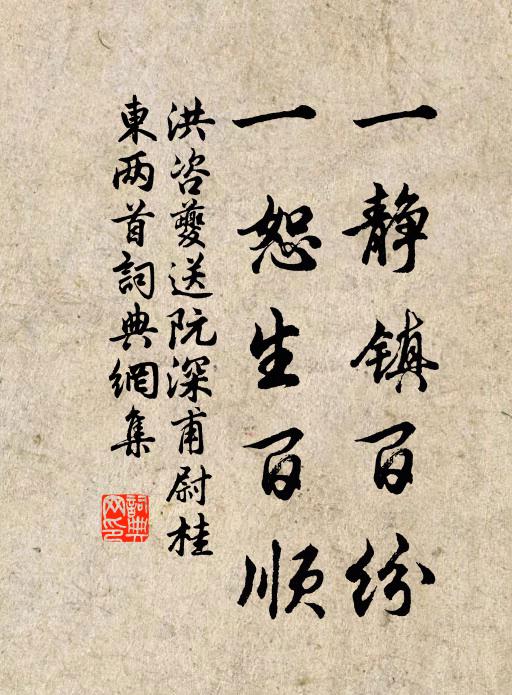 一静镇百纷
一恕生百顺
洪咨夔送阮深甫尉桂
東两首詞典網集
詞典
网印